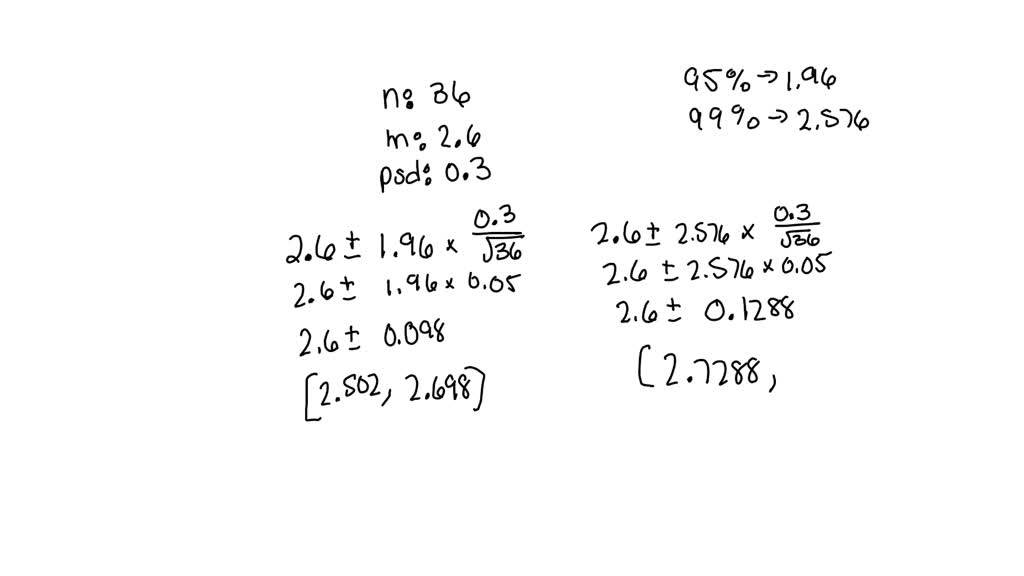 n: 36
m: 2.6
psd: 0.3
95% → 1.96
99% → 2.576
2.6 ± 1.96 × 0.3/√36
2.6 ± 1.96 × 0.05
2.6 ± 0.098
[2.502, 2.698]
2.6 ± 2.576 × 0.3/√36
2.6 ± 2.576 × 0.05
2.6 ± 0.1288
[2.7288,